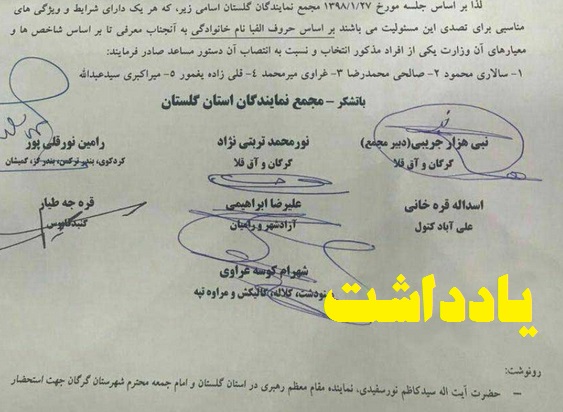 لذا بر اساس جلسه مورخ ۱۳۹۸/۱/۲۷ مجمع نمایندگان گلستان اسامی زیر، که هر یک دارای شرایط و ویژگی های
مناسبی برای تصدی این مسئولیت می باشند بر اساس حروف الفبا نام خانوادگی به آنجناب معرفی تا بر اساس شاخص ها و
معیارهای آن وزارت یکی از افراد مذکور انتخاب و نسبت به انتصاب آن دستور مساعد صادر فرمایند:
۱- سالاری محمود ۲- صالحی محمدرضا ۳- غراوی میرمحمد ۴- قلی زاده یغمور ۵- میراکبری سیدعبدالله
باتشکر - مجمع نمایندگان استان گلستان
نبی هزار جریبی(دبیر مجمع) نورمحمد تربتی نژاد رامین نورقلی پور
گرگان و آق قلا گرگان و آق قلا کردکوی، بندر ترکمن، بندرگز، گمیشان
اسداله قره خانی علیرضا ابراهیمی قره جه طیار
علی آباد کتول آزادشهر و رامیان گنبدکاووس
شهرام کوسه غراوی
نودشت، کلاله، گالیکش و مراوه تپه
یادداشت
رونوشت:
- حضرت آیت اله سیدکاظم نورمفیدی، نماینده مقام معظم رهبری در استان گلستان و امام جمعه محترم شهرستان گرگان جهت استحضار